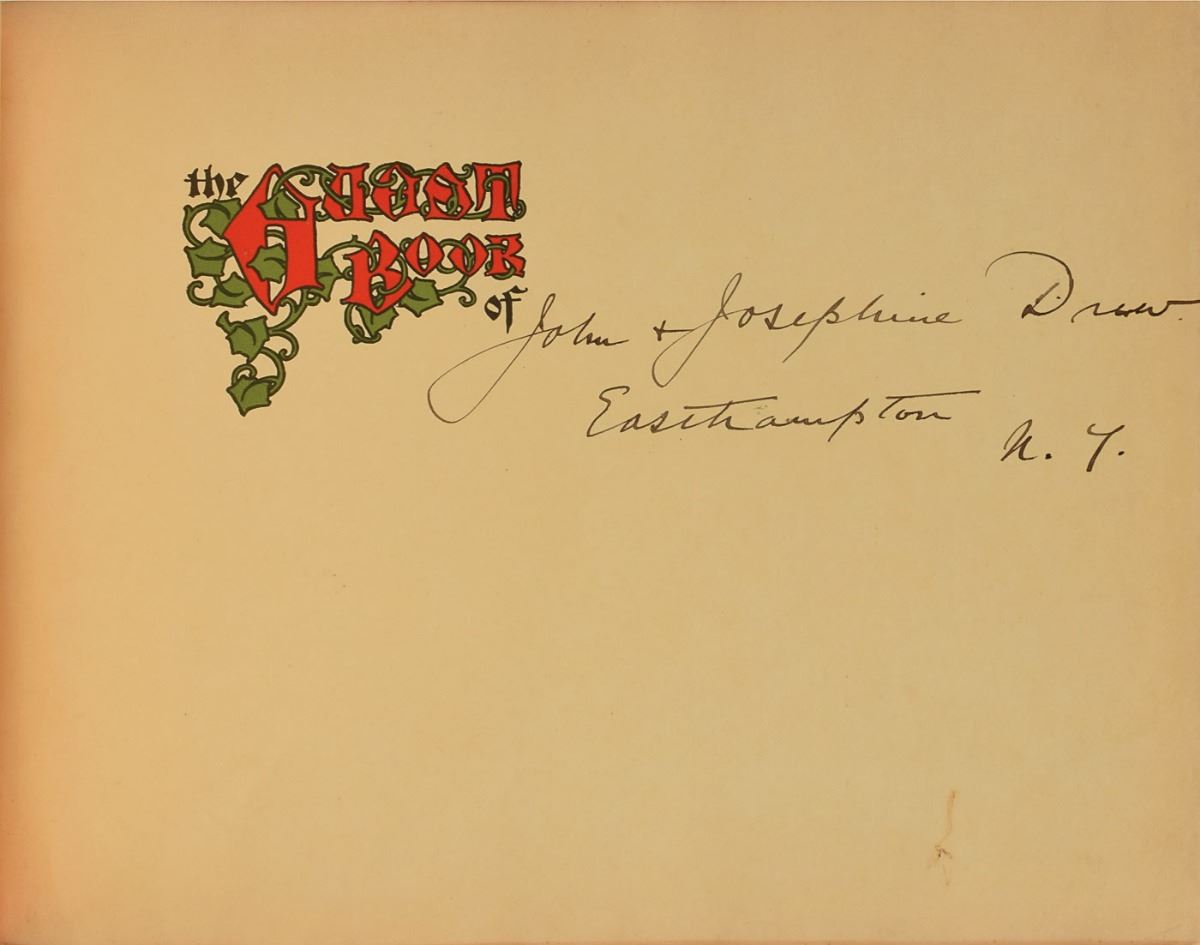 the Guest
Book
of John & Josephine Drew.
Easthampton
N. Y.